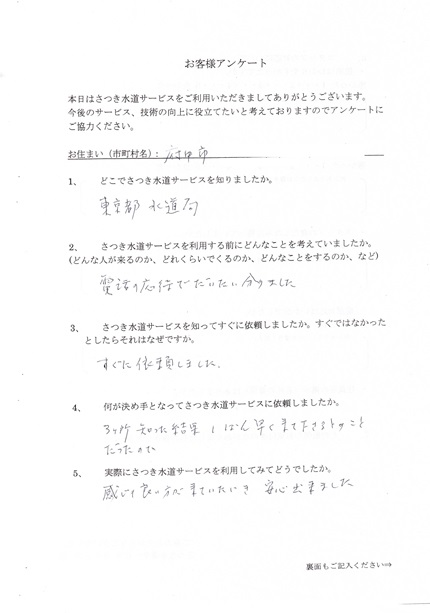 お客様アンケート
本日はさつき水道サービスをご利用いただきましてありがとうございます。
今後のサービス、技術の向上に役立てたいと考えておりますのでアンケートに
ご協力ください。
お住まい（市町村名）： 府中市
1、 どこでさつき水道サービスを知りましたか。
東京都 水道局
2、 さつき水道サービスを利用する前にどんなことを考えていましたか。
(どんな人が来るのか、どれくらいでくるのか、どんなことをするのか、など)
電話の応待でだいたい分りました
3、 さつき水道サービスを知ってすぐに依頼しましたか。すぐではなかった
としたらそれはなぜですか。
すぐに依頼しました。
4、 何が決め手となってさつき水道サービスに依頼しましたか。
3ヶ所 知った結果 いばん早く来て下さるとのこと
だったので
5、 実際にさつき水道サービスを利用してみてどうでしたか。
感じて良い方が来ていただき 安心出来ました
裏面もご記入ください⇒